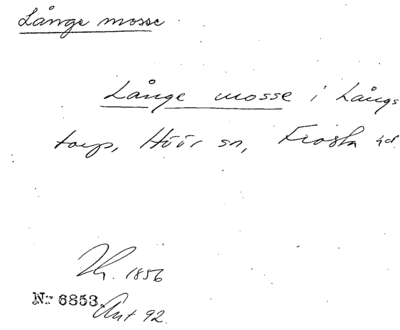 Långe mosse
Långe mosse i Långs
torp, Höör sn, Frosta hd
Th. 1856
Nr 6853
Ant 92.